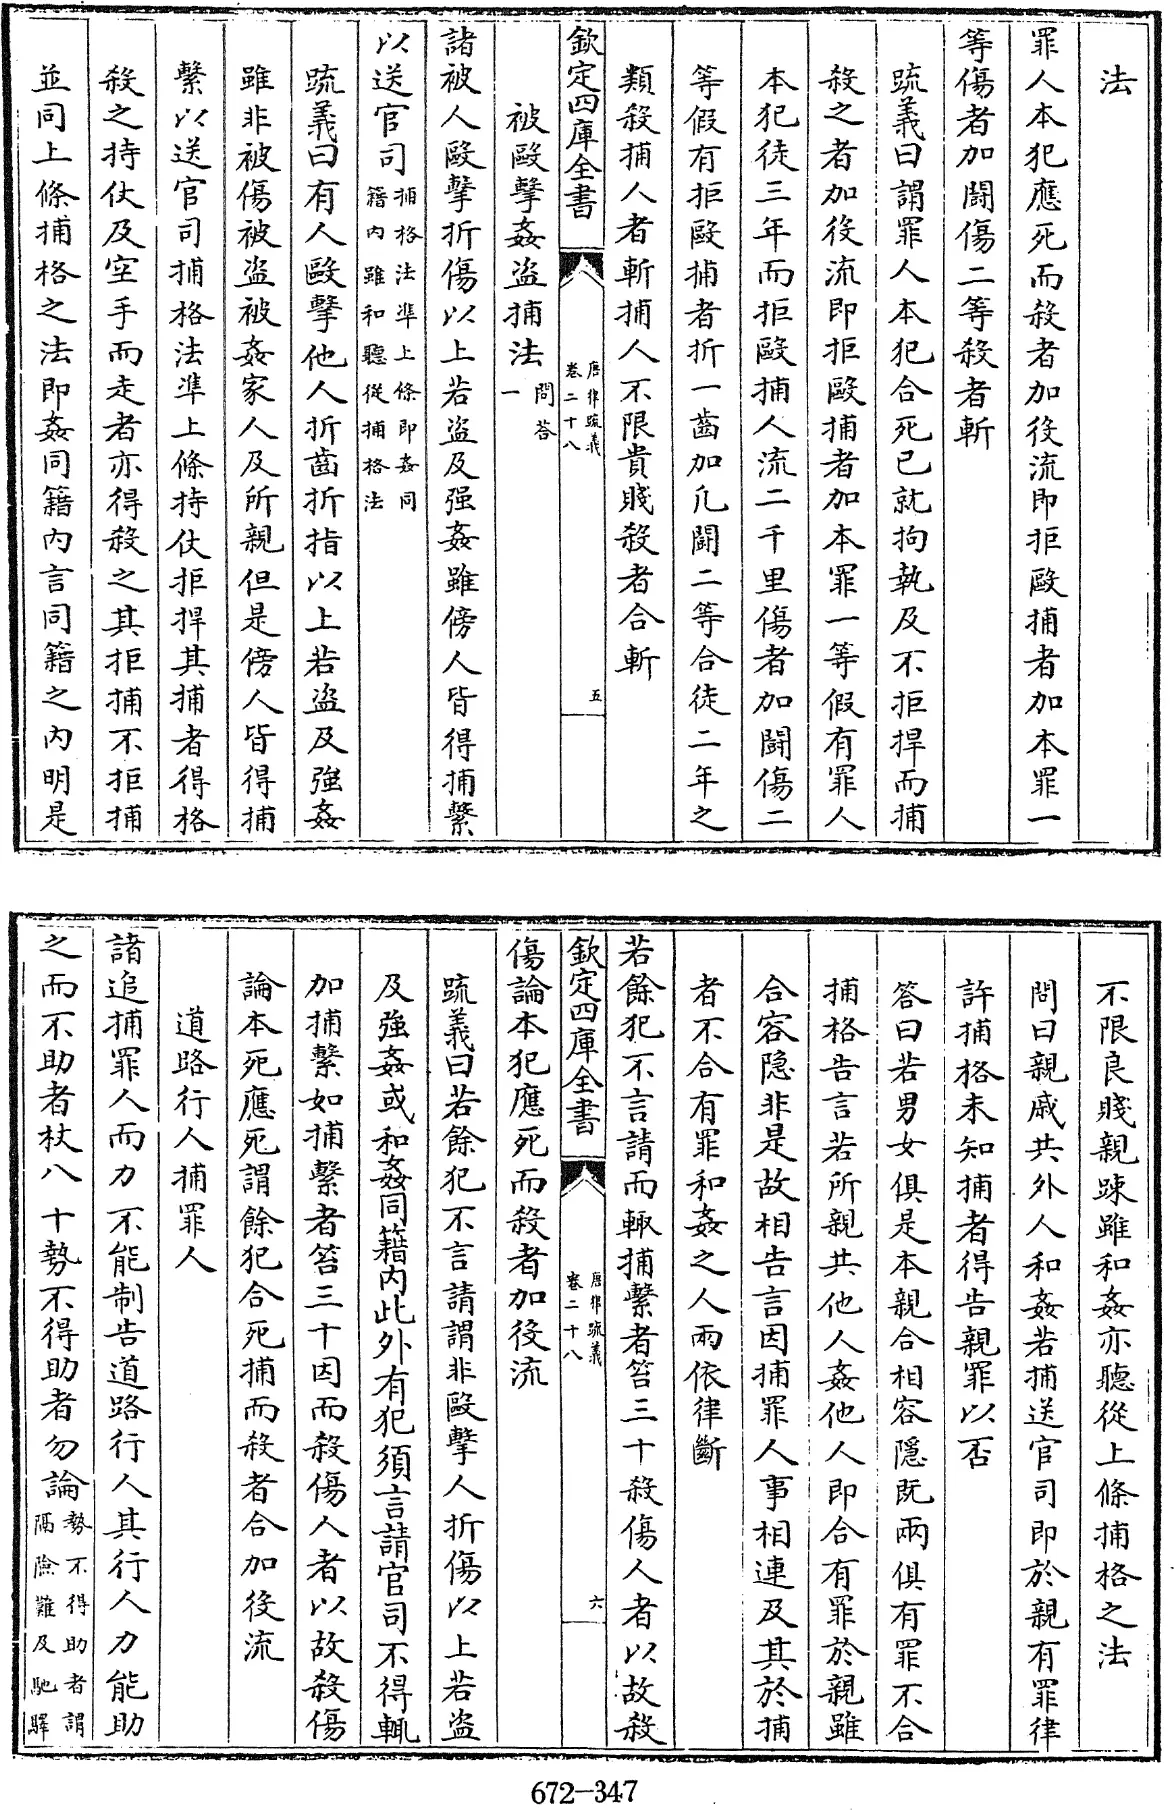 法
罪人本犯應死而殺者加役流即拒毆捕者加本罪一
等傷者加鬭傷二等殺者斬
疏義曰謂罪人本犯合死已就拘執及不拒捍而捕
殺之者加役流即拒毆捕者加本罪一等假有罪人
本犯徒三年而拒毆捕人流二千里傷者加鬭傷二
等假有拒毆捕者折一齒加凡鬭二等合徒二年之
類殺捕人者斬捕人不限貴賤殺者合斬
欽定四庫全書
唐律疏義
卷二十八
五
被毆擊姦盜捕法問答
一
諸被人毆擊折傷以上若盜及强姦雖傍人皆得捕繫
以送官司捕格法準上條即姦同
籍内雖和聽從捕格法
疏義曰有人毆擊他人折齒折指以上若盜及強姦
雖非被傷被盜被姦家人及所親但是傍人皆得捕
繫以送官司捕格法準上條持仗拒捍其捕者得格
殺之持仗及空手而走者亦得殺之其拒捕不拒捕
並同上條捕格之法即姦同籍内言同籍之内明是
不限良賤親踈雖和姦亦聽從上條捕格之法
問曰親戚共外人和姦若捕送官司即於親有罪律
許捕格未知捕者得告親罪以否
答曰若男女俱是本親合相容隠既兩俱有罪不合
捕格告言若所親共他人姦他人即合有罪於親雖
合容隐非是故相告言因捕罪人事相連及其於捕
者不合有罪和姦之人兩依律斷
若餘犯不言請而輙捕繫者笞三十殺傷人者以故殺
欽定四庫全書
唐律疏義
卷二十八
六
傷論本犯應死而殺者加役流
疏義曰若餘犯不言請謂非毆擊人折傷以上若盜
及強姦或和姦同籍内此外有犯須言請官司不得輒
加捕繫如捕繫者笞三十因而殺傷人者以故殺傷
論本死應死謂餘犯合死捕而殺者合加役流
道路行人捕罪人
諸追捕罪人而力不能制告道路行人其行人力能助
之而不助者杖八十勢不得助者勿論勢不得助者謂
隔險難及馳驛
672-347